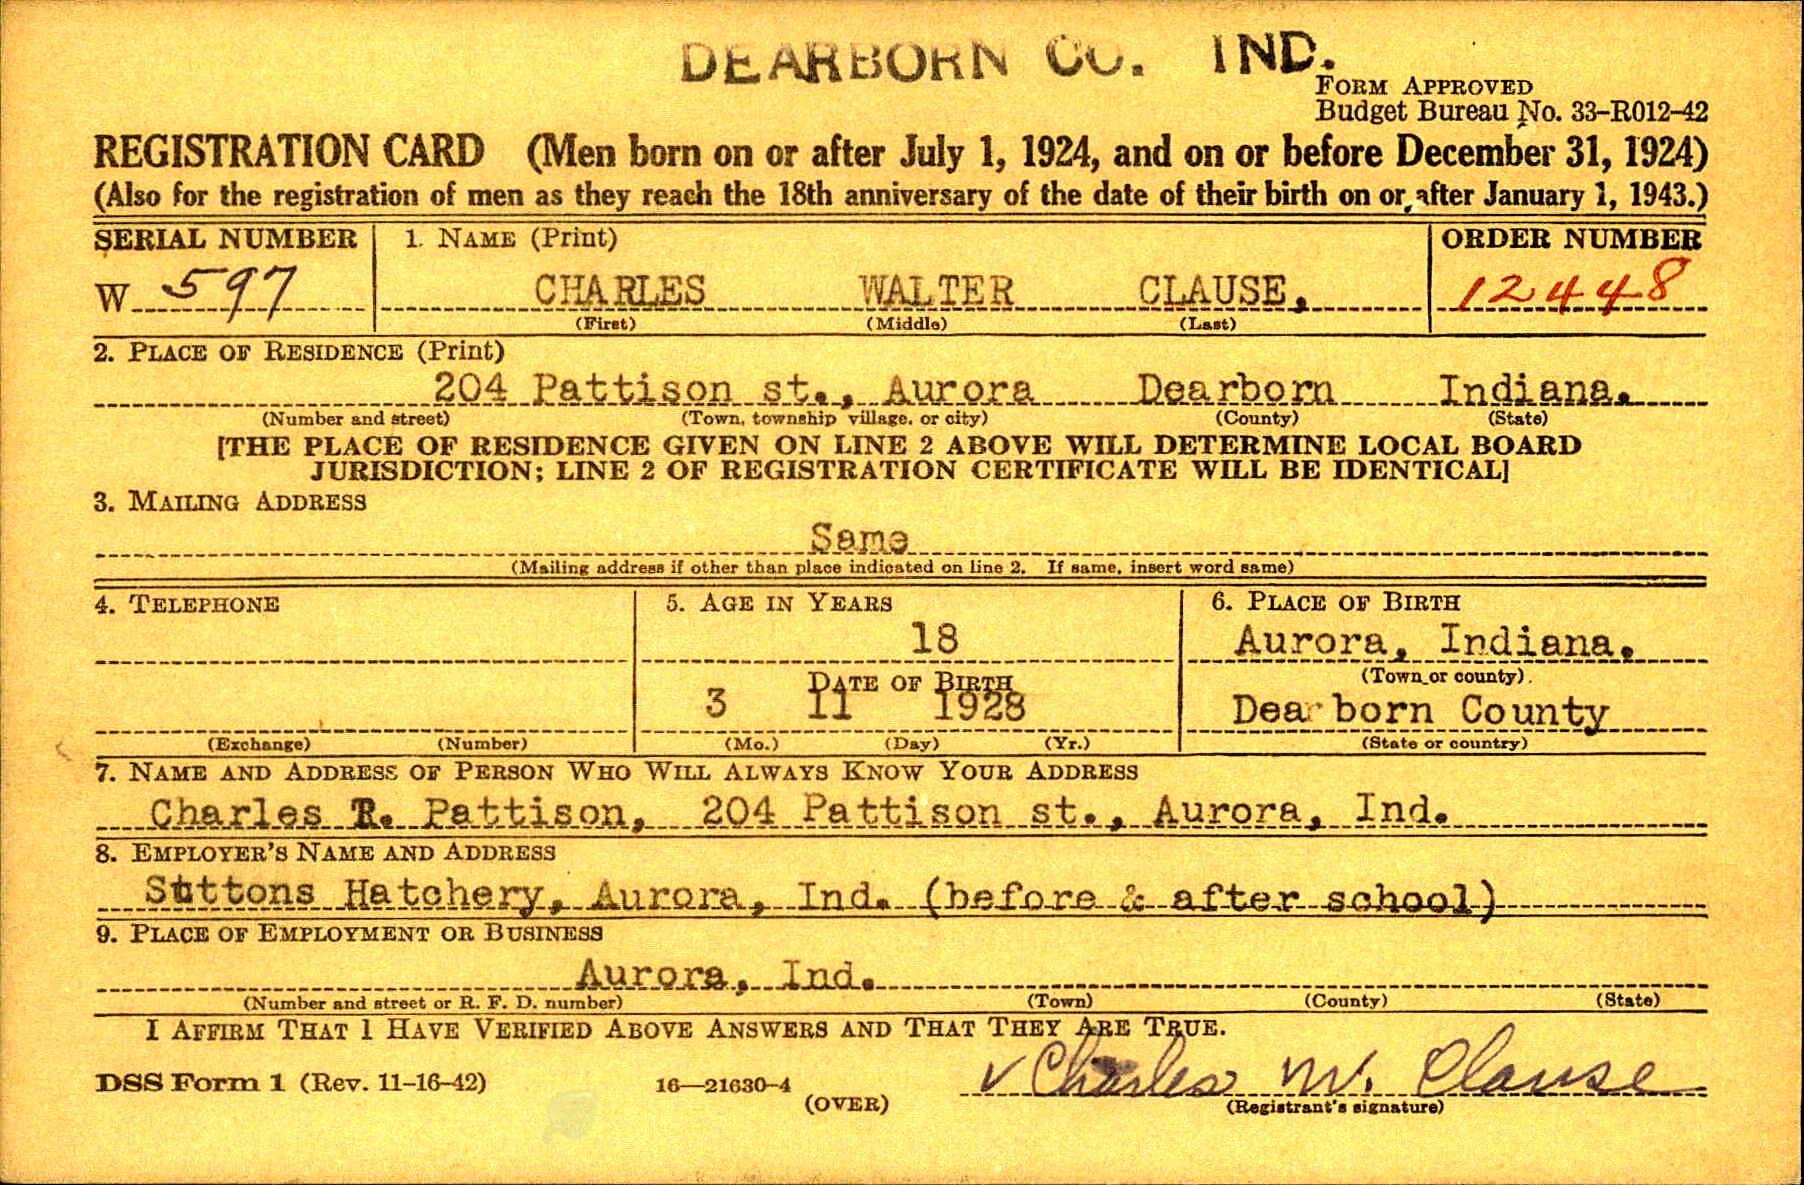 DEARBORN CO. IND.
FORM APPROVED
Budget Bureau No. 33-R012-42
REGISTRATION CARD (Men born on or after July 1, 1924, and on or before December 31, 1924)
(Also for the registration of men as they reach the 18th anniversary of the date of their birth on or after January 1, 1943.)
SERIAL NUMBER 1. NAME (Print) ORDER NUMBER
W 597 CHARLES WALTER CLAUSE, 12448
(First) (Middle) (Last)
2. PLACE OF RESIDENCE (Print)
204 Pattison st., Aurora Dearborn Indiana.
(Number and street) (Town, township village, or city) (County) (State)
[THE PLACE OF RESIDENCE GIVEN ON LINE 2 ABOVE WILL DETERMINE LOCAL BOARD
JURISDICTION; LINE 2 OF REGISTRATION CERTIFICATE WILL BE IDENTICAL]
3. MAILING ADDRESS
Same
(Mailing address if other than place indicated on line 2. If same, insert word same)
4. TELEPHONE 5. AGE IN YEARS 6. PLACE OF BIRTH
18 Aurora, Indiana.
DATE OF BIRTH (Town or county)
3 11 1928 Dearborn County
(Exchange) (Number) (Mo.) (Day) (Yr.) (State or country)
7. NAME AND ADDRESS OF PERSON WHO WILL ALWAYS KNOW YOUR ADDRESS
Charles Pattison, 204 Pattison st., Aurora, Ind.
8. EMPLOYER'S NAME AND ADDRESS
Suttons Hatchery, Aurora, Ind. (before & after school)
9. PLACE OF EMPLOYMENT OR BUSINESS
Aurora, Ind.
(Number and street or R. F. D. number) (Town) (County) (State)
I AFFIRM THAT I HAVE VERIFIED ABOVE ANSWERS AND THAT THEY ARE TRUE.
DSS Form 1 (Rev. 11-16-42) 16—21630-4 ✓ Charles W. Clause
(OVER) (Registrant's signature)